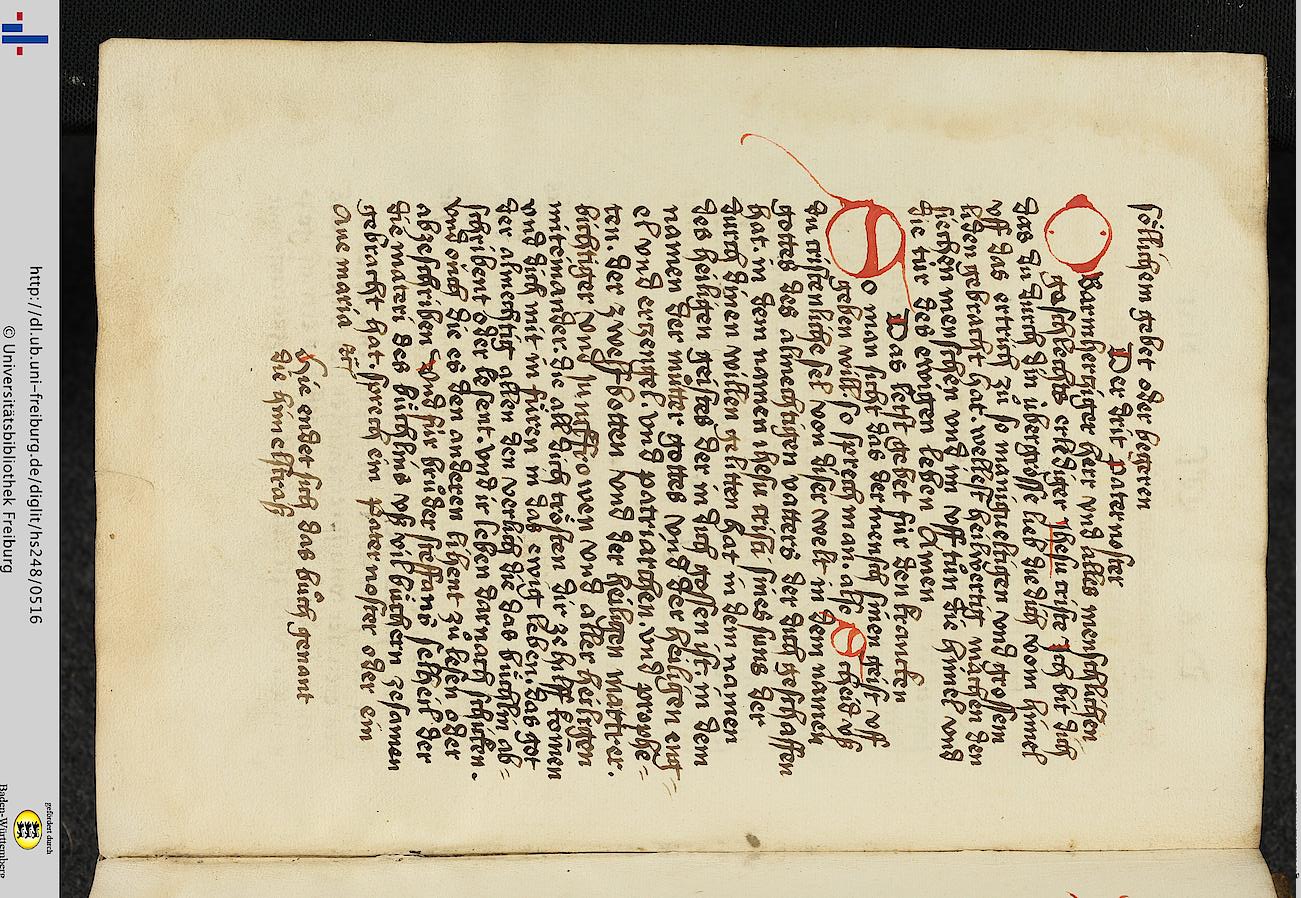 söllichem gebet oder begeren
Der drit pater noster
O Barmhertziger herr vnd alles menschlichen
geschlechts erlediger Jhesu criste Ich bit dich
das du durch din übergrosse lieb die dich vom himel
vff das ertrich zu so manigueltigen vnd grossen
liden gebracht hat. wellest heilwertig machen den
siechen menschen vnd im vff tun die himel vnd
die tür des ewigen leben Amen
Das letst gebet für den krancken
So man sicht das der mensch sinen geist vff
geben will so sprech man. alse Scheid vß
du cristenliche sel von diser welt in dem namen
gottes des almechtigen vatters der dich geschaffen
hat. in dem namen ihesu cristi sines suns der
durch dinen willen gelitten hat in dem namen
des heiligen geistes der in dich gossen ist. in dem
namen der mutter gottes vnd der heiligen eng=
el vnd ertzengel. vnd patriarchen vnd prophe=
ten der zwelf botten vnd der heiligen martrer.
bichtiger vnd junckfrowen vnd aller heiligen
mitenander. die all dich trösten dir ze hilff komen
vnd dich mit in füren in das ewig leben. das got
der almechtig allen den verlich die das büchlin ab=
schribent oder lesent. vnd ir leben darnach schicken.
vnd ouch die es den anderen lihent zu lesen oder
abzeschriben Vnd für bruder steffans selheil der
die materi des büchlins vß vil büchern zesamen
gebracht hat. sprech ein pater noster oder ein
Aue maria &c
Hie endet sich das buch genant
die himelstraß
http://dl.ub.uni-freiburg.de/diglit/hs248/0516
© Universitätsbibliothek Freiburg
gefördert durch
Baden-Württemberg